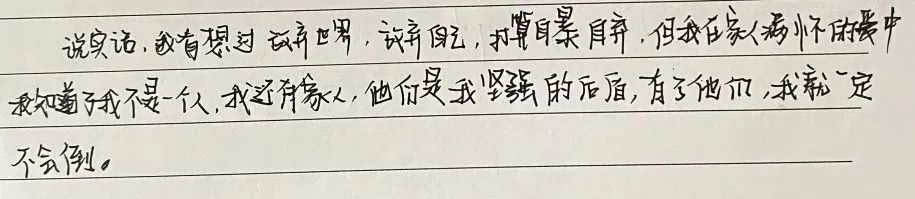 说实话,我有想过放弃世界,放弃自己,打算自暴自弃,但我在家人满怀的爱中
我知道了我不是一个人,我还有家人,他们是我坚强的后盾,有了他们,我就一定
不会倒。